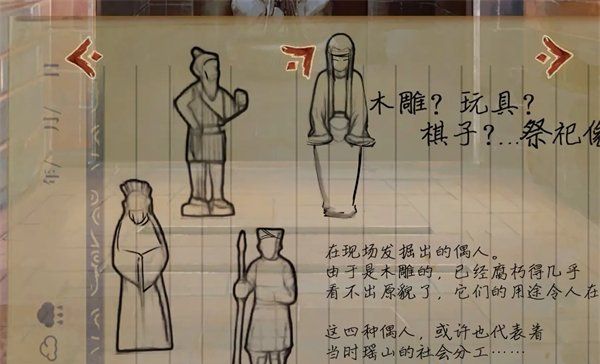 木雕？玩具？
棋子？...祭祀像
在现场发掘出的偶人。
由于是木雕的，已经腐朽得几乎
看不出原貌了，它们的用途令人在
这四种偶人，或许也代表着
当时瑶山的社会分工……
年/ 月/ 日